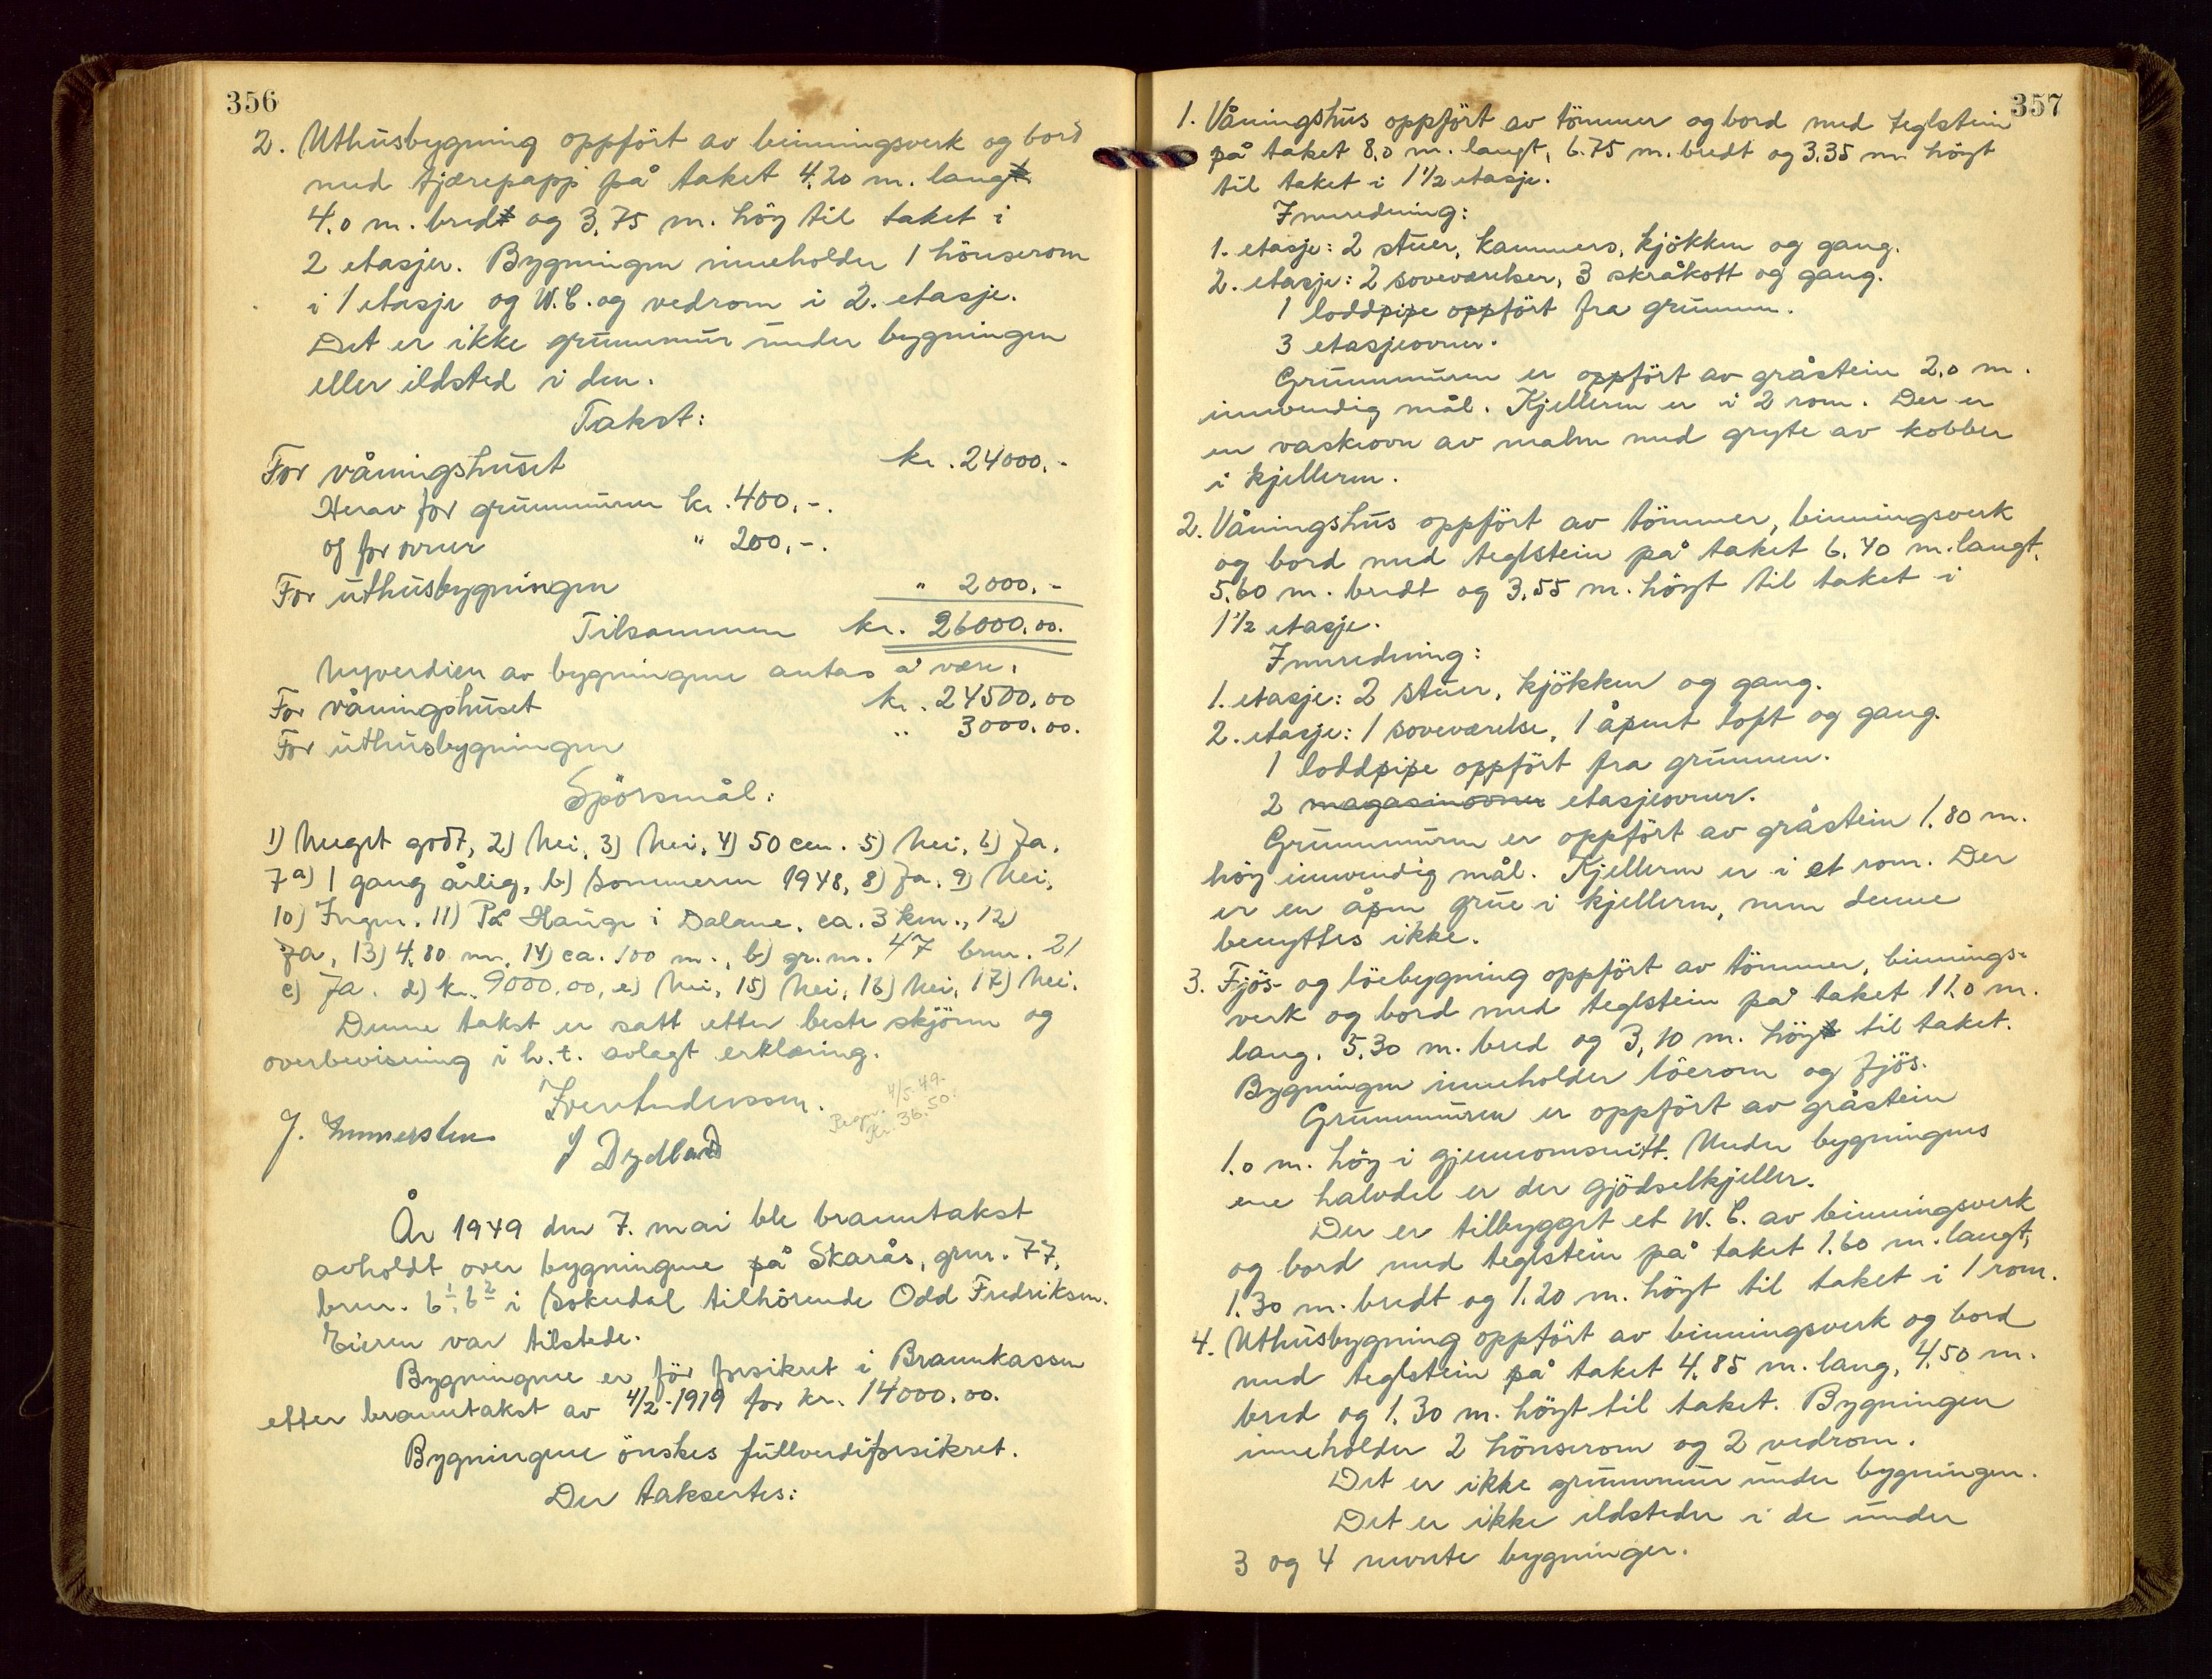 356
2. Uthusbygning oppført av binningsverk og bord
med tjærepapp på taket 4,20 m. lang
4,0 m. bred og 3,75 m. høy til taket i
2 etasjer. Bygningen inneholder 1 hönserom
i 1 etasje og W.C. og vedrom i 2. etasje.
Det er ikke grunnmur under bygningen
eller ildsted i den.
Takst:
For våningshuset kr. 24000.-
Herav for grunnmuren kr. 400.-.
og for ovner " 200,-.
For uthusbygningen " 2000.-
Tilsammen kr. 26000.00.
Nyverdien av bygningene antas å være.
For våningshuset kr. 24500.00
For uthusbygningen " 3000.00.
Spörsmål:
1) Meget godt, 2) Nei, 3) Nei, 4) 50 cm. 5) Nei, 6) Ja.
7a) 1 gang årlig, b) Sommeren 1948, 8) Ja. 9) Nei,
10) Ingen. 11) På Hauge i Dalane, ca. 3 km., 12)
Ja, 13) 4,80 m. 14) ca. 100 m., b) gr.nr. 47 brnr. 21
c) Ja. d) kr. 9000.00, e) Nei, 15) Nei, 16) Nei, 17) Nei.
Denne takst er satt etter beste skjönn og
overbevisning i h.t. avlagt erklæring.
Iver Anderssen.
Regn. 4/5.49.
Kr. 36.50.
J. Immerstein J Dydland
År 1949 den 7. mai ble branntakst
avholdt over bygningene på Skarås, grnr. 77,
brnr. 6¹, 6² i Sokndal tilhörende Odd Fredriksen.
Eieren var tilstede.
Bygningene er för forsikret i Brannkassen
etter branntakst av 4/2-1919 for kr. 14000.00.
Bygningene önskes fullverdiforsikret.
Der taksertes:
357
1. Våningshus oppfört av tömmer og bord med teglstein
på taket 8,0 m. langt, 6.75 m. bredt og 3.35 m. höyt
til taket i 1 1/2 etasje.
Innredning:
1. etasje: 2 stuer, kammers, kjökken og gang.
2. etasje: 2 soveværelser, 3 skråkott og gang.
1 loddpipe oppfört fra grunnen.
3 etasjeovner.
Grunnmuren er oppfört av gråstein 2,0 m.
innvendig mål. Kjelleren er i 2 rom. Der er
en vaskeovn av malm med gryte av kobber
i kjelleren.
2. Våningshus oppfört av tömmer, binningsverk
og bord med teglstein på taket 6,40 m. langt,
5,60 m. bredt og 3,55 m. höyt til taket i
1 1/2 etasje.
Innredning:
1. etasje: 2 stuer, kjökken og gang.
2. etasje: 1 soveværelse, 1 åpent loft og gang.
1 loddpipe oppfört fra grunnen.
2 magasinovner etasjeovner.
Grunnmuren er oppfört av gråstein 1,80 m.
höy innvendig mål. Kjelleren er i et rom. Der
er en åpen grue i kjelleren, men denne
benyttes ikke.
3. Fjös- og löebygning oppfört av tömmer, binnings-
verk og bord med teglstein på taket 11,0 m.
lang, 5,30 m. bred og 3,10 m. höy til taket.
Bygningen inneholder löerom og fjös.
Grunnmuren er oppfört av gråstein
1,0 m. höy i gjennomsnitt. Under bygningens
ene halvdel er der gjödselkjeller.
Der er tilbygget et W.C. av binningsverk
og bord med teglstein på taket 1,60 m. langt,
1,30 m. bredt og 1,20 m. höyt til taket i 1 rom.
4. Uthusbygning oppfört av binningsverk og bord
med teglstein på taket 4,85 m. lang, 4,50 m.
bred og 1,30 m. höyt til taket. Bygningen
inneholder 2 hönserom og 2 vedrom.
Det er ikke grunnmur under bygningen.
Det er ikke ildsteder i de under
3 og 4 nevnte bygninger.